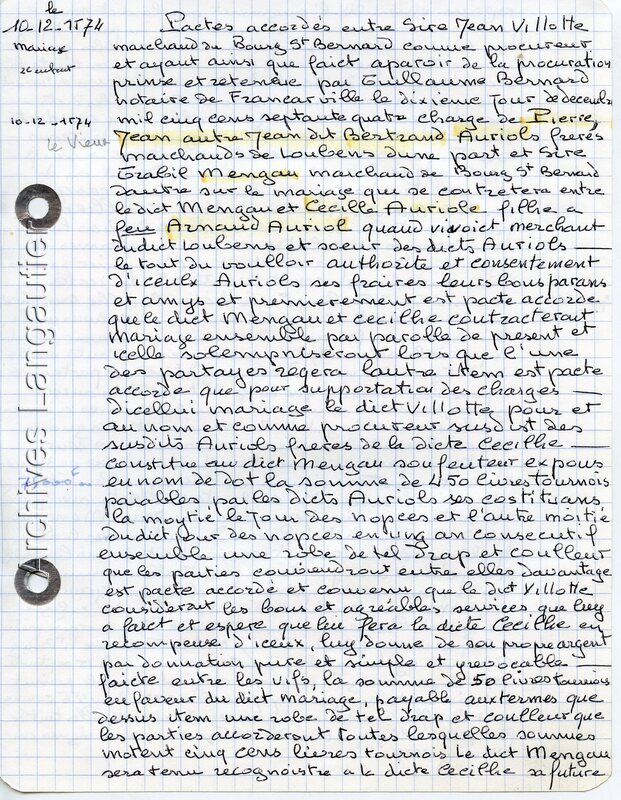 le
10-12-1574
mariage
2e enfant
10-12-1574
le Vieux
Archives Langautier
Pactes accordés entre Sire Jean Villotte
marchand du Bourg St Bernard comme procureur
et ayant ainsi que faict aparoir de la procuration
prinse et retenue par Guillaume Bernard
notaire de Francarville le dixieme Jour de decembre
mil cinq cens septante quatre charge de Pierre,
Jean autre Jean dit Bertrand Auriols freres
marchands de Loubens dune part et Sire
Mengau marchand de Bourg St Bernard
dautre sur le mariage qui se contretera entre
le dict Mengau et Cecille Auriole filhe a
feu Arnaud Auriol quand vivoict merchant
du dict Loubens et soeur des dicts Auriols
le tout du voulloir authorite et consentement
d'iceulx Auriols ses fraires leurs bous parans
et amys et premierement est pacte accorde
que le dict Mengau et cecilhe contracteront
mariage ensemble par parolle de present et
icelle solempniseront lors que l'une
des partayes regera lautre item est pacte
accorde que pour supportation des charges
dicellui mariage le dict Villotte pour et
au nom et comme procureur susdist des
susdits Auriols freres de la dicte Cecilhe
constitue au dict Mengau son feuteur expous
en nom de dot la somme de 450 livres tournois
paiables par les dicts Auriols ses costituans
la moytié le Jour des nopces et l'autre moitié
du dict jour des nopces en ung an consecutif
ensemble une robe de tel drap et coulleur
que les parties conviendront entre elles davantage
est pacte accordé et convenu que le dict Villotte
considérant les bous et agréables services que luy
a faict et espere que leu fera la dicte Cecilhe en
recompense d'iceux, luy donne de son propre argent
par donnation pure et simple et yrevocable
faicte entre les vifs, la somme de 50 livres tournois
en faveur du dict mariage, payable aux termes que
dessus item une robe de tel drap et coulleur que
les parties accorderont toutes lesquelles sommes
motent cinq cens livres tournois le dict Mengau
sera tenu recognoistre a la dicte Cecilhe sa future